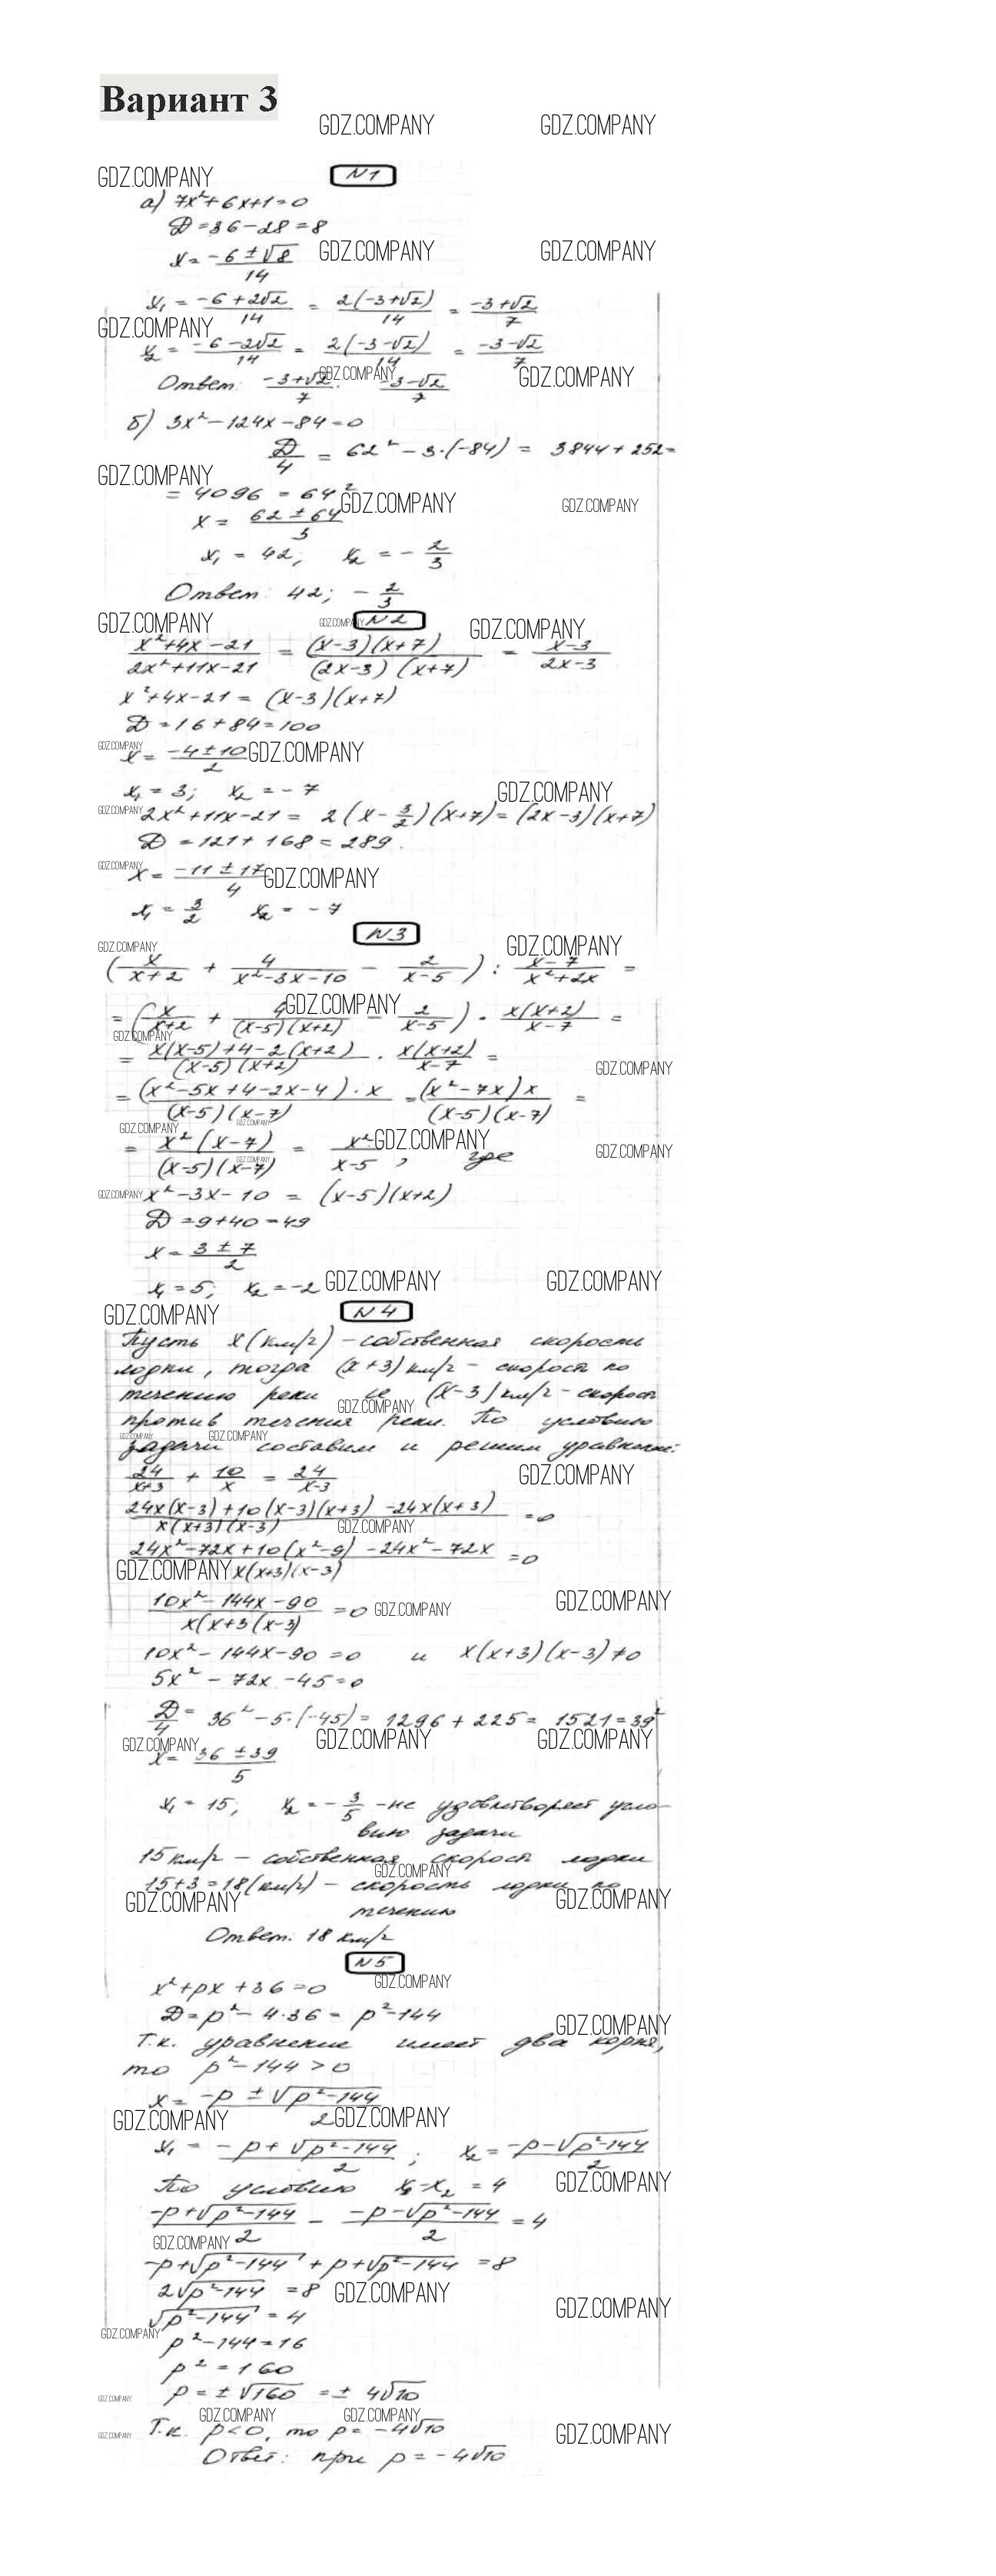 Вариант 3
GDZ.COMPANY GDZ.COMPANY
GDZ.COMPANY N1
а) 7x²+6x+1=0
D=36-28=8
x= (-6±√8)/14 GDZ.COMPANY GDZ.COMPANY
x₁ = (-6+2√2)/14 = 2(-3+√2)/14 = (-3+√2)/7
GDZ.COMPANY
x₂ = (-6-2√2)/14 = 2(-3-√2)/14 = (-3-√2)/7
GDZ.COMPANY GDZ.COMPANY
Ответ: (-3+√2)/7; (-3-√2)/7
б) 3x²-124x-84=0
D/4 = 62²-3·(-84) = 3844+252=
GDZ.COMPANY
= 4096 = 64² GDZ.COMPANY GDZ.COMPANY
x = (62±64)/3
x₁ = 42; x₂ = -2/3
Ответ: 42; -2/3
GDZ.COMPANY GDZ.COMPANY N2 GDZ.COMPANY
(x²+4x-21)/(2x²+11x-21) = (x-3)(x+7)/((2x-3)(x+7)) = (x-3)/(2x-3)
x²+4x-21 = (x-3)(x+7)
D=16+84=100
GDZ.COMPANY x= (-4±10)/2 GDZ.COMPANY
x₁ = 3; x₂ = -7 GDZ.COMPANY
GDZ.COMPANY 2x²+11x-21 = 2(x-3/2)(x+7)=(2x-3)(x+7)
D = 121+168=289.
GDZ.COMPANY x= (-11±17)/4 GDZ.COMPANY
x₁ = 3/2 x₂ = -7
N3
GDZ.COMPANY GDZ.COMPANY
(x/(x+2) + 4/(x²-3x-10) - 2/(x-5)) : (x-7)/(x²+2x) =
GDZ.COMPANY
= (x/(x+2) + 4/((x-5)(x+2)) - 2/(x-5)) · x(x+2)/(x-7) =
GDZ.COMPANY
= (x(x-5)+4-2(x+2))/((x-5)(x+2)) · x(x+2)/(x-7) = GDZ.COMPANY
= (x²-5x+4-2x-4)·x/((x-5)(x-7)) = (x²-7x)x/((x-5)(x-7)) =
GDZ.COMPANY GDZ.COMPANY
= x²(x-7)/((x-5)(x-7)) = x²/(x-5), где GDZ.COMPANY GDZ.COMPANY GDZ.COMPANY
GDZ.COMPANY x²-3x-10 = (x-5)(x+2)
D=9+40=49
x= (3±7)/2
x₁=5; x₂=-2 GDZ.COMPANY GDZ.COMPANY
GDZ.COMPANY N4
Пусть x(км/ч) - собственная скорость
лодки, тогда (x+3) км/ч - скорость по
течению реки и (x-3) км/ч - скорость
GDZ.COMPANY
против течения реки. По условию
GDZ.COMPANY GDZ.COMPANY
задачи составим и решим уравнение:
24/(x+3) + 10/x = 24/(x-3) GDZ.COMPANY
(24x(x-3)+10(x-3)(x+3)-24x(x+3))/(x(x+3)(x-3)) =0
GDZ.COMPANY
(24x²-72x+10(x²-9)-24x²-72x)/(x(x+3)(x-3)) =0
GDZ.COMPANY
(10x²-144x-90)/(x(x+3(x-3)) =0 GDZ.COMPANY GDZ.COMPANY
10x²-144x-90=0 и x(x+3)(x-3)≠0
5x²-72x-45=0
D/4 = 36²-5·(-45)= 1296+225= 1521=39²
GDZ.COMPANY GDZ.COMPANY GDZ.COMPANY
x= (36±39)/5
x₁ = 15; x₂ = -3/5 - не удовлетворяет усло-
вию задачи
15 км/ч - собственная скорость лодки
GDZ.COMPANY
15+3=18(км/ч) - скорость лодки по
GDZ.COMPANY GDZ.COMPANY
течению
Ответ. 18 км/ч
N5
x²+px+36=0 GDZ.COMPANY
D=p²-4·36= p²-144
GDZ.COMPANY
Т.к. уравнение имеет два корня,
то p²-144>0
x= (-p±√(p²-144))/2
GDZ.COMPANY GDZ.COMPANY
x₁ = (-p+√(p²-144))/2; x₂ = (-p-√(p²-144))/2
По условию x₁-x₂ = 4 GDZ.COMPANY
(-p+√(p²-144))/2 - (-p-√(p²-144))/2 = 4
GDZ.COMPANY
-p+√(p²-144) + p+√(p²-144) =8
2√(p²-144) =8 GDZ.COMPANY
√(p²-144) = 4 GDZ.COMPANY
GDZ.COMPANY
p²-144=16
p²=160
GDZ.COMPANY p=±√160 =± 4√10
GDZ.COMPANY GDZ.COMPANY
GDZ.COMPANY Т.к. p<0, то p= -4√10 GDZ.COMPANY
Ответ: при p=-4√10